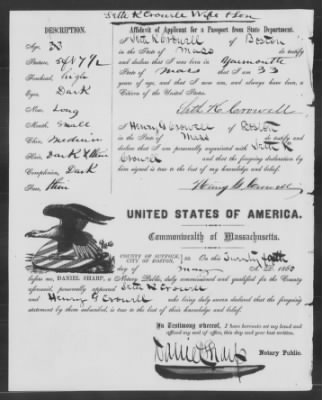 Seth K Crowell Wife & Son
DESCRIPTION.
Age, 33
Stature, 5 ft 7 1/2
Forehead, high
Eyes, Dark
Nose, Long
Mouth, Small
Chin, Medium
Hair, Dark & thin
Complexion, Dark
Face, thin
Affidavit of Applicant for a Passport from State Department.
I Seth K Crowell of Boston
in the State of Mass do testify
and declare that I was born in Yarmouth
State of Mass that I am 33
years of age, and that I now am, and always have been, a
Citizen of the United States.
Seth K. Crowell
I Henry G Crowell of Boston
in the State of Mass do testify and
declare that I am personally acquainted with Seth K
Crowell and that the foregoing declaration by
him signed is true to the best of my knowledge and belief.
Henry G. Crowell
UNITED STATES OF AMERICA.
Commonwealth of Massachusetts.
COUNTY OF SUFFOLK,
CITY OF BOSTON, ss. On this Twenty
day of May A. D. 186
before me, DANIEL SHARP, a Notary Public, duly commissioned and qualified for the County
aforesaid, personally appeared Seth K Crowell
and Henry G Crowell who being duly sworn declared that the foregoing
statement by them subscribed, is true to the best of their knowledge and belief.
In Testimony whereof, I have hereunto set my hand and
affixed my seal of office, this day and year last written.
Daniel Sharp Notary Public.